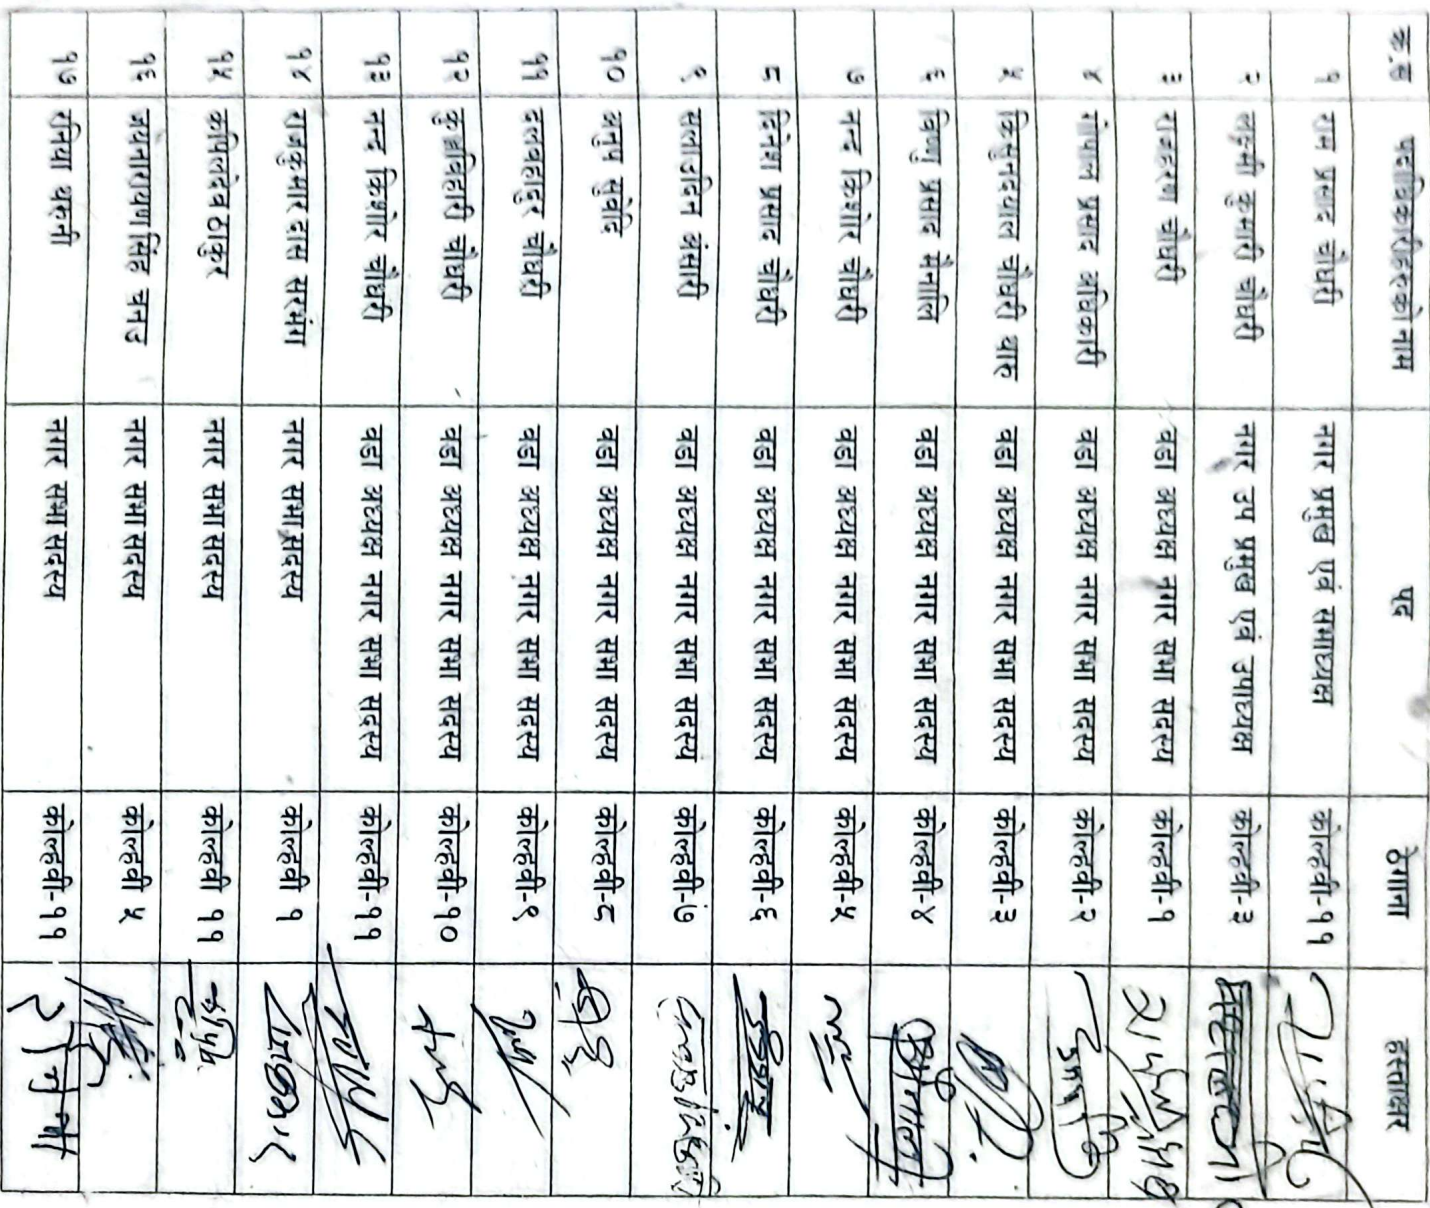 क्र.स पदाधिकारीहरुको नाम पद ठेगाना हस्ताक्षर
१ राम प्रसाद चौधरी नगर प्रमुख एवं सभाध्यक्ष कोल्हवी-११
२ लक्ष्मी कुमारी चौधरी नगर उप प्रमुख एवं उपाध्यक्ष कोल्हवी-३
३ राजहरण चौधरी वडा अध्यक्ष नगर सभा सदस्य कोल्हवी-१
४ गोपाल प्रसाद अधिकारी वडा अध्यक्ष नगर सभा सदस्य कोल्हवी-२
५ किसुनदयाल चौधरी थारु वडा अध्यक्ष नगर सभा सदस्य कोल्हवी-३
६ विष्णु प्रसाद मैनालि वडा अध्यक्ष नगर सभा सदस्य कोल्हवी-४
७ नन्द किशोर चौधरी वडा अध्यक्ष नगर सभा सदस्य कोल्हवी-५
८ दिनेश प्रसाद चौधरी वडा अध्यक्ष नगर सभा सदस्य कोल्हवी-६
९ सलाउदिन अंसारी वडा अध्यक्ष नगर सभा सदस्य कोल्हवी-७
१० अनुप सुवेदि वडा अध्यक्ष नगर सभा सदस्य कोल्हवी-८
११ दलवहादुर चौधरी वडा अध्यक्ष नगर सभा सदस्य कोल्हवी-९
१२ कुञ्जविहारी चौधरी वडा अध्यक्ष नगर सभा सदस्य कोल्हवी-१०
१३ नन्द किशोर चौधरी वडा अध्यक्ष नगर सभा सदस्य कोल्हवी-११
१४ राजकुमार दास सरभंग नगर सभा सदस्य कोल्हवी १
१५ कपिलदेव ठाकुर नगर सभा सदस्य कोल्हवी ११
१६ जयनारायण सिंह चनउ नगर सभा सदस्य कोल्हवी ५
१७ रनिया थरुनी नगर सभा सदस्य कोल्हवी-११